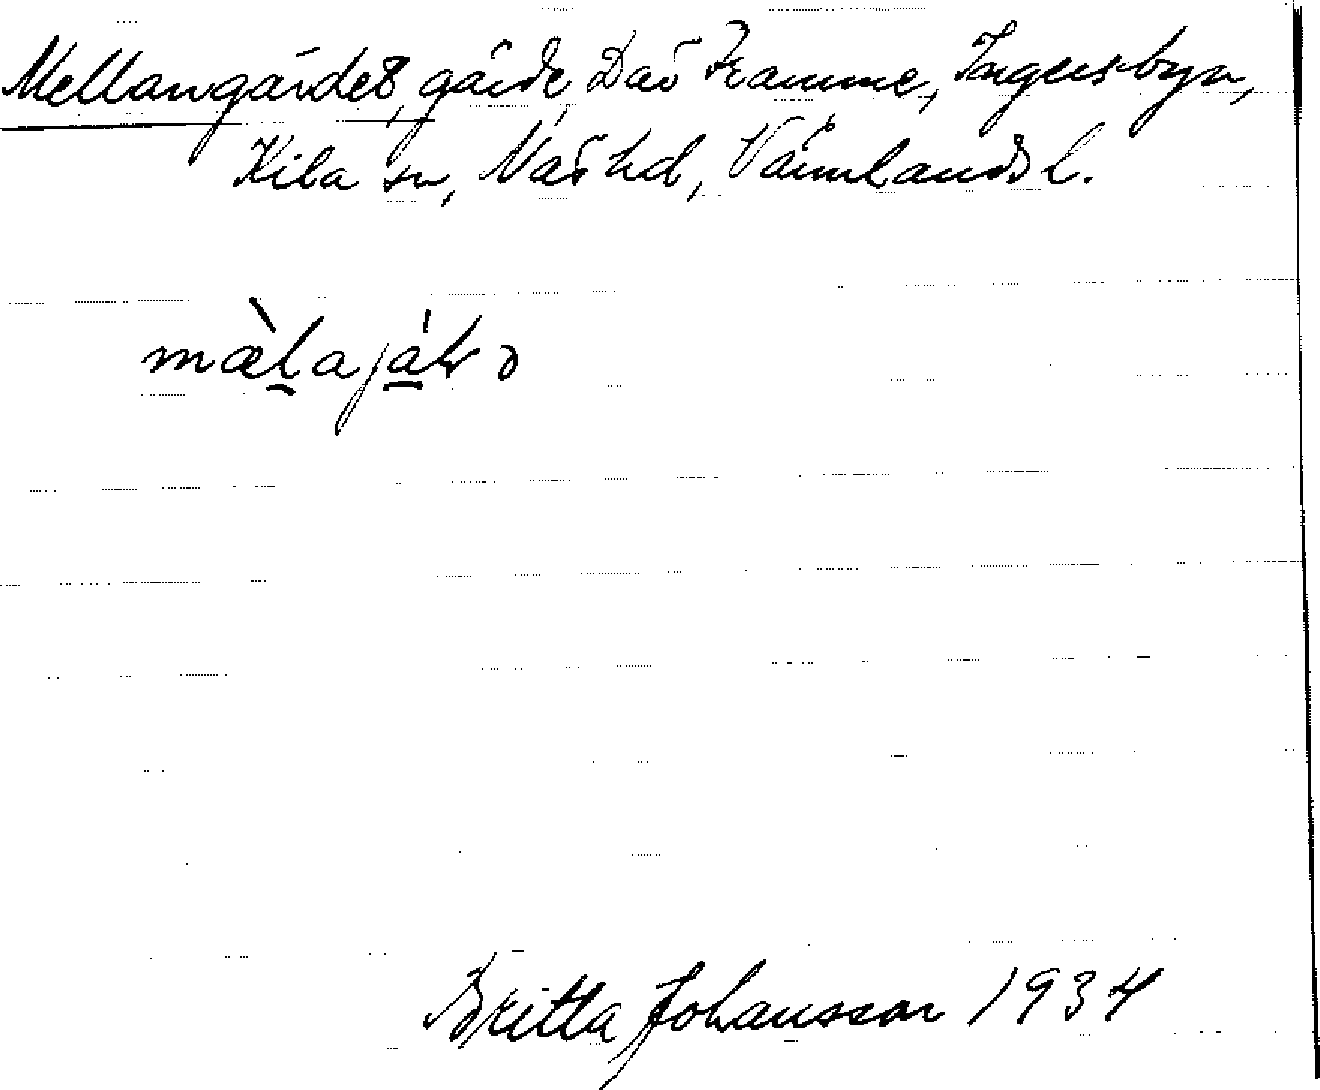 Mellangärdet, gärde Där Framme, Ingersbyn,
Kila sn, Näs hd, Värmlands l.
mæ̀l̠ajá̠ɫə
Britta Johansson 1934